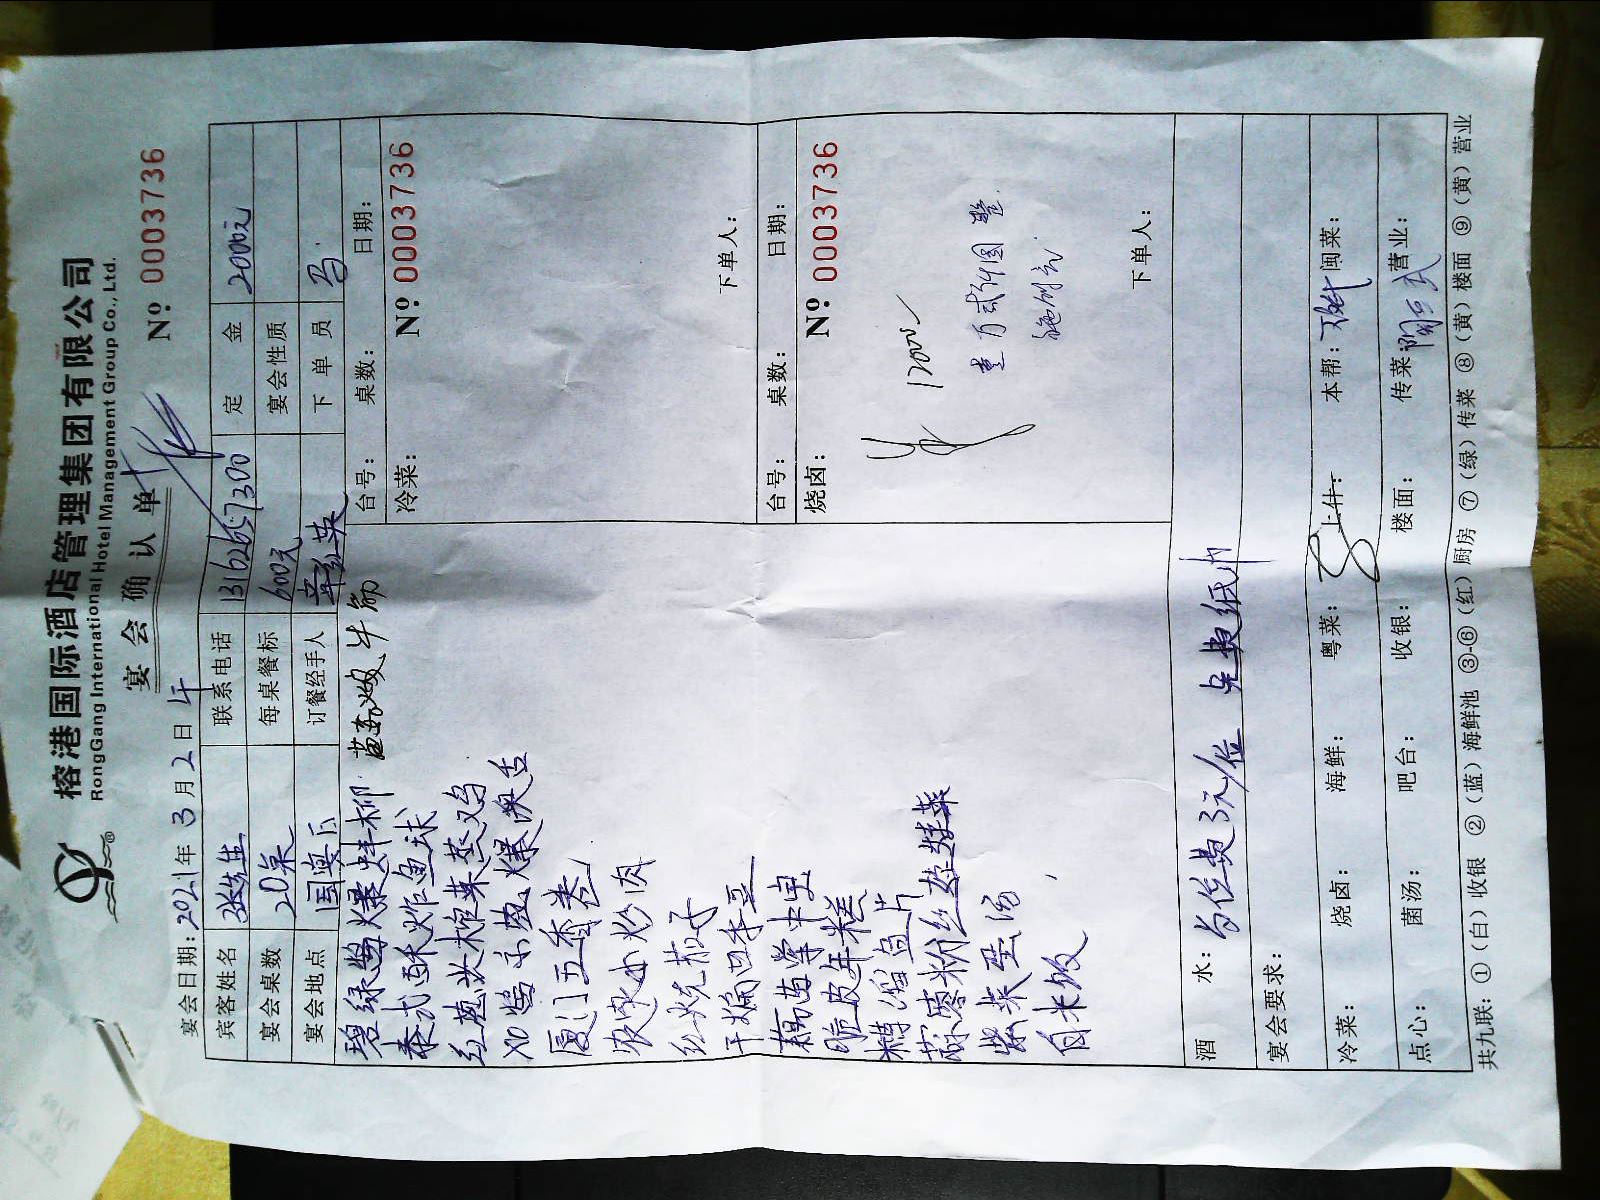 榕港国际酒店管理集团有限公司
RongGang International Hotel Management Group Co., Ltd.
宴会确认单
№ 0003736
宴会日期: 2021年 3 月 2 日 午
宾客姓名 张先生 联系电话 13162657300 定金 2000元
宴会桌数 20桌 每桌餐标 600元 宴会性质
宴会地点 国奥厅 订餐经手人 辛红英 下单员 马
碧绿酱爆蚌柳
牛筋
泰式酥炸鱼球
红葱头榨菜蒸鸡
XO酱小葱爆澳舌
厦门五香卷
农家小炒肉
红烧茄子
干煸四季豆
脆皮年糕
糟溜鱼片
蒜蓉粉丝娃娃菜
紫菜蛋汤
白米饭
台号: 桌数: 日期:
冷菜: № 0003736
下单人:
台号: 桌数: 日期:
烧卤: № 0003736
12000
下单人:
酒水: 茶位费3元/位 免费纸巾
宴会要求:
冷菜: 烧卤: 海鲜: 粤菜: 上什: 本帮: 闽菜:
点心: 菌汤: 吧台: 收银: 楼面: 传菜: 营业:
共九联: ①(白)收银 ②(蓝)海鲜池 ③-⑥(红)厨房 ⑦(绿)传菜 ⑧(黄)楼面 ⑨(黄)营业